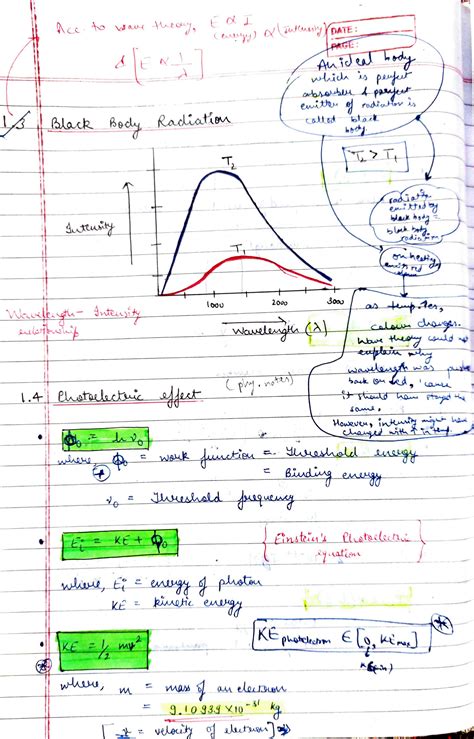 Acc to wave theory, E α I
(energy) α (intensity)
& [E α 1/λ]
DATE:
PAGE:
An ideal body
which is perfect
absorber & perfect
emitter of radiation is
called black
body.
1.3 Black Body Radiation
T₂ > T₁
T₂
T₁
Intensity
1000 2000 3000
Wavelength (λ)
Wavelength - Intensity
relationship
radiation
emitted by
black body =
black body
radiation
on heating
emitted
as temp ↑es,
colour changes.
Wave theory could not
explain why
wavelength was
back on red, 'cause
it should have stayed the
same.
However, intensity might have
changed with ↑ in temp.
1.4 Photoelectric effect (phy. notes)
ϕ₀ = hν₀
where, ϕ₀ = work function = Threshold energy
= Binding energy
ν₀ = Threshold frequency
Eᵢ = KE + ϕ₀
{Einstein's Photoelectric
equation}
where, Eᵢ = energy of photon
KE = kinetic energy
KE = 1/2 mv²
KE photoelectron ∈ [0, KEmax]
where, m = mass of an electron
= 9.10939 × 10⁻³¹ kg
[v = velocity of electron]